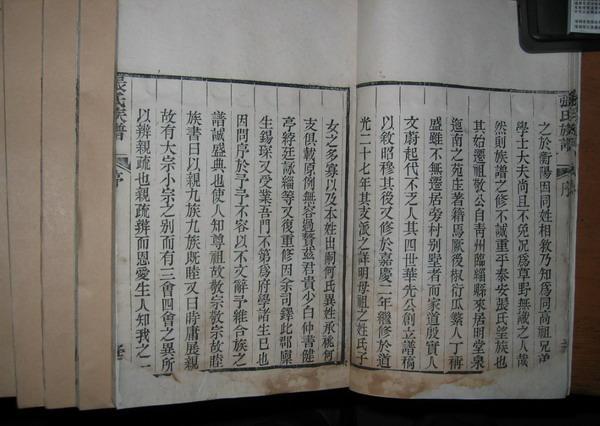 張氏族譜 序
之於衡陽因同姓相敘乃知爲同高祖兄弟
學士大夫尚且不免況爲草野無識之人哉
然則族譜之修不誠重乎泰安張氏望族也
其始遷祖敬公自青州臨緇縣來居明堂泉
迤南之苑庄著籍焉厥後椒衍瓜繁人丁称
盛雖不無遷居旁村別墅者而家道殷實人
文蔚起代不乏人其四世華先公創立譜稿
以敘昭穆其後又修於嘉慶二年繼修於道
光二十七年其支派之詳明母祖之姓氏子
女之多寡以及本姓出嗣何氏異姓承祧何
支俱載原例無容過贅茲君貴少白仲善健
亭綍廷詠緇等又復重修因余司鐸此邦廪
生錫琛又受業吾門不第爲府學諸生已也
因問序於予予不容以不文辭予維合族之
譜誠盛典也使人知尊祖故敬宗敬宗故睦
族書曰以親九族九族既睦又曰時庸展親
故有大宗小宗之別而有三會四會之異所
以辨親疏也親疏辨而恩愛生人知我之一
張氏族譜 序